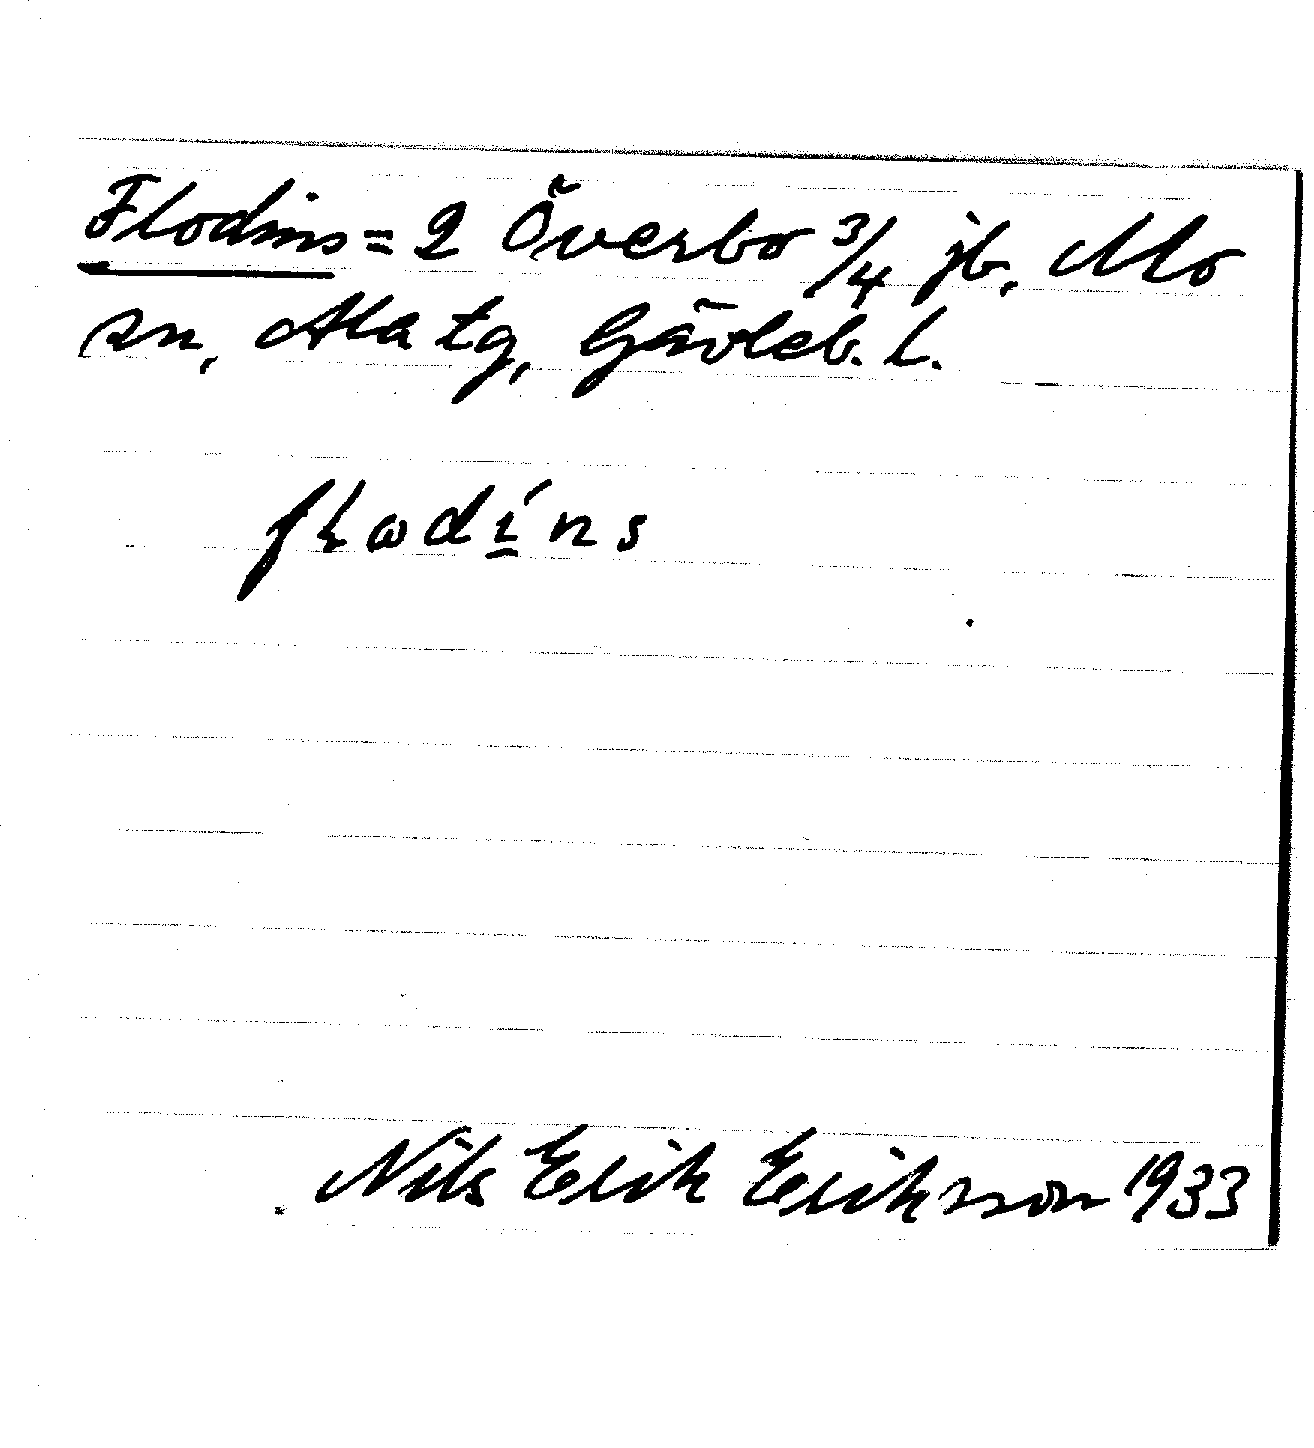 Flodins = 2 Överbo 3/4 jb, Mo
sn, Ala tg, Gävleb. l.
flωdí̲ns
Nils Erik Eriksson 1933